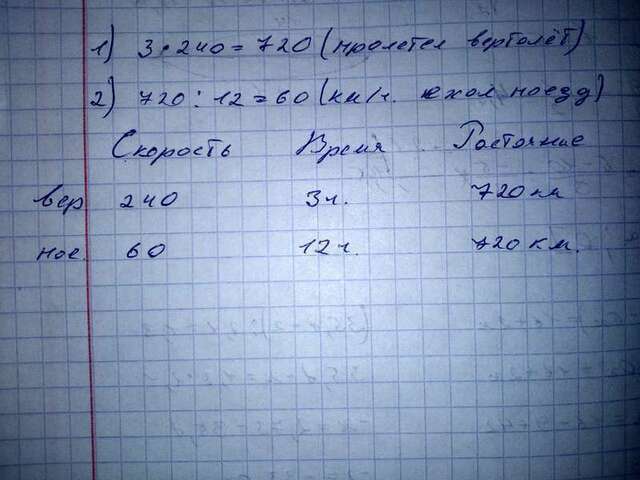 1) 3·240=720 (пролетел вертолёт)
2) 720:12=60 (км/ч. ехал поезд)
Скорость Время Растояние
вер 240 3ч. 720 км
пое. 60 12ч. 720 км.